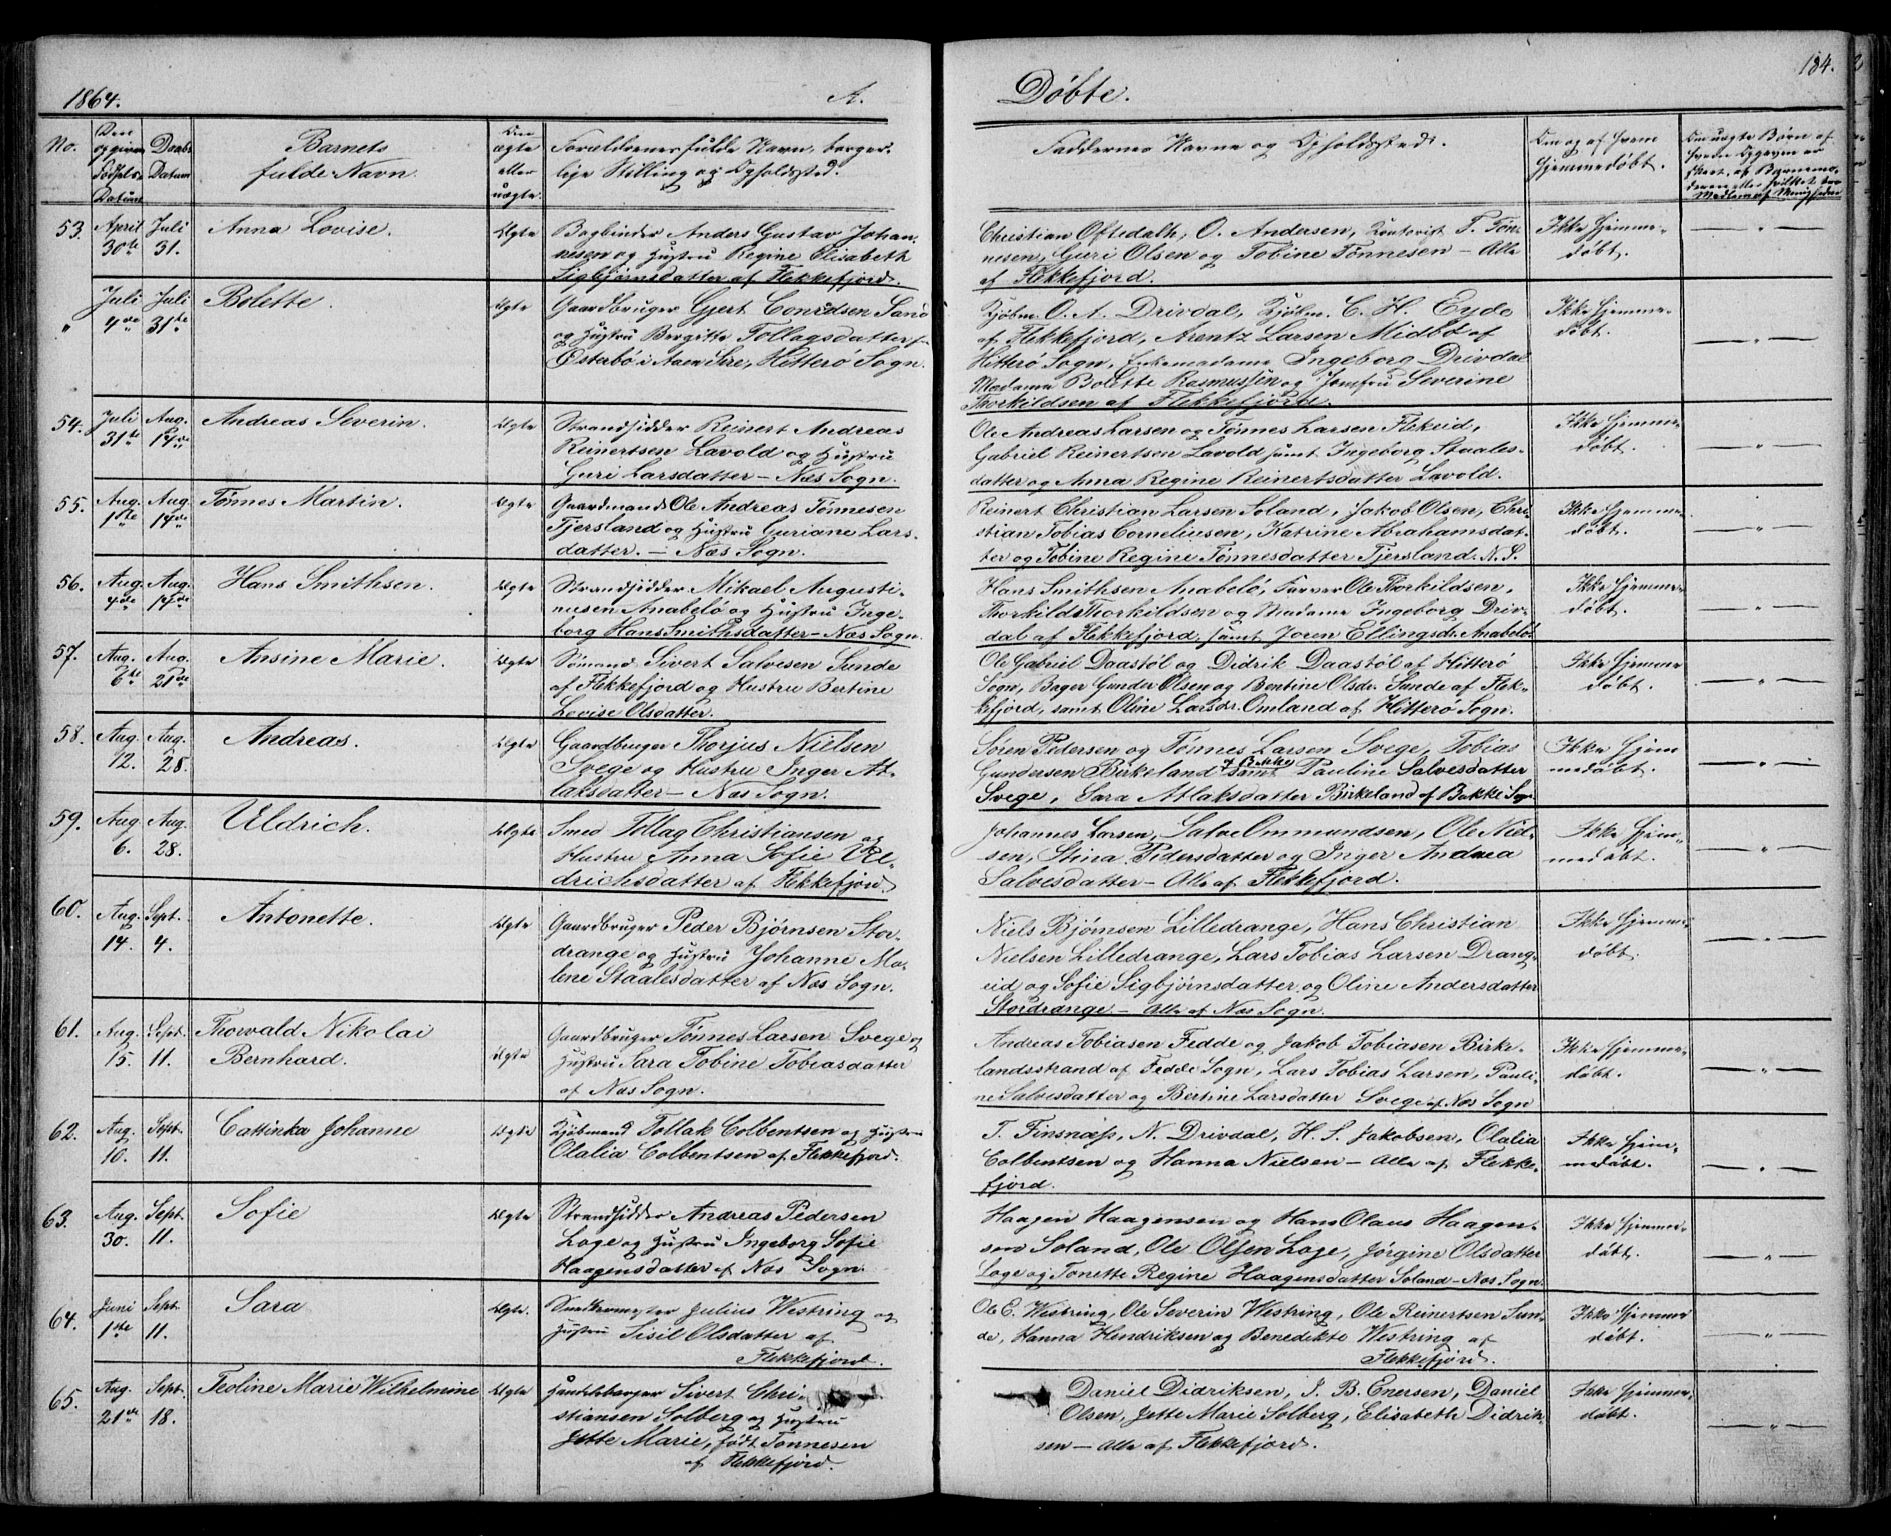 1864. A. Døbte. 184.
No.
Den opgivne Fødsels-Datum
Daabs Datum
Barnets fulde Navn
Om ægte eller uægte
Forældrenes fulde Navn, borgerlige Stilling og Opholdssted.
Faddernes Navne og Opholdssted.
Om og af hvem hjemmedøbt.
53. April 30te Juli 31. Anna Lovise. Ægte
Bogbinder Anders Gustav Johan-
nesen og Hustru Regine Elisabeth
Sigbjørnsdatter af Flekkefjord.
Christian Oftedahl, O. Andersen, Kontorist T. Tøn-
nesen, Guri Olsen og Tobine Tønnesen – Alle
af Flekkefjord.
Ikke hjemme-
døbt.
— " —
" Juli 4de Juli 31te Bolette. Ægte
Gaardbruger Gjert Conradsen Sand
og Hustru Bergitte Tollagsdatter
Østerbø i Aaen Sire, Hitterø Sogn.
Kjøbm. O. A. Drivdal, Kjøbm. C. H. Eyde
af Flekkefjord, Arentz Larsen Midbø af
Hitterø Sogn, Enkemadame Ingeborg Drivdal
Madame Bolette Rasmussen og Jomfru Severine
Thorkildsen af Flekkefjord.
Ikke hjemme-
døbt.
— " —
54. Juli 31te Aug. 14de Andreas Severin. Ægte
Strandsidder Reinert Andreas
Reinertsen Lavold og Hustru
Guri Larsdatter – Næs Sogn.
Ole Andreas Larsen og Tønnes Larsen Flikeid,
Gabriel Reinertsen Lavold samt Ingeborg Staales-
datter og Anna Regine Reinertsdatter Lavold.
Ikke hjemme-
døbt.
— " —
55. Aug. 1ste Aug. 14de Tønnes Martin. Ægte
Gaardmand Ole Andreas Tønnesen
Tjersland og Hustru Guriane Lars-
datter. – Næs Sogn.
Reinert Christian Larsen Soland, Jakob Olsen, Chri-
stian Tobias Corneliusen, Katrine Abrahamsdat-
ter og Tobine Regine Tønnesdatter Tjersland. N. S.
Ikke hjemme-
døbt.
— " —
56. Aug. 4de Aug. 14de Hans Smithsen. Ægte
Strandsidder Mikael Augusti-
nusen Anabelø og Hustru Inge-
borg Hans Smithsdatter – Næs Sogn.
Hans Smithsen Anabelø, Farver Ole Thorkildsen,
Thorkild Thorkildsen og Madame Ingeborg Driv-
dal af Flekkefjord, samt Joren Ellingsdr. Anabelø.
Ikke hjemme-
døbt.
— " —
57. Aug. 6te Aug. 21de Ansine Marie. Ægte
Sømand Sivert Salvesen Sunde
af Flekkefjord og Hustru Bertine
Lovise Olsdatter.
Ole Gabriel Daastøl og Didrik Daastøl af Hitterø
Sogn, Bager Gunder Olsen og Bentine Olsdr. Sunde af Flek-
kefjord, samt Oline Larsdr. Omland af Hitterø Sogn.
Ikke hjemme
døbt.
— " —
58. Aug. 12. Aug. 28. Andreas. Ægte
Gaardbruger Thorjus Nielsen
Svege og Hustru Inger At-
laksdatter – Næs Sogn.
Søren Pedersen og Tønnes Larsen Svege, Tobias
Gundersen Birkeland af Bakke samt Pauline Salvesdatter
Svege, Sara Atlaksdatter Birkeland af Bakke Sogn.
Ikke hjem
medøbt.
— " —
59. Aug. 6. Aug. 28. Uldrich. Ægte
Smed Tollag Christiansen og
Hustru Anna Sofie Ul-
drichsdatter af Flekkefjord.
Johannes Larsen, Salve Ommundsen, Ole Niel-
sen, Stina Pedersdatter og Inger Andrea
Salvesdatter – Alle af Flekkefjord.
Ikke hjem-
medøbt.
— " —
60. Aug. 14. Sept. 4. Antonette. Ægte
Gaardbruger Peder Bjørnsen Stor-
drange og Hustru Johanne Ma-
lene Staalesdatter af Næs Sogn.
Niels Bjørnsen Lilledrange, Hans Christian
Nielsen Lilledrange, Lars Tobias Larsen Drang-
eid og Sofie Sigbjørnsdatter og Oline Andersdatter
Stordrange – Alle af Næs Sogn.
Ikke hjemme-
døbt.
— " —
61. Aug. 15. Sept. 11. Thorvald Nikolai
Bernhard. Ægte
Gaardbruger Tønnes Larsen Svege og
Hustru Sara Tobine Tobiasdatter
af Næs Sogn.
Andreas Tobiasen Fedde og Jakob Tobiasen Birke-
landsstrand af Fedde Sogn, Lars Tobias Larsen, Pauli-
ne Salvesdatter og Bertine Larsdatter Svege af Næs Sogn
Ikke hjemme-
døbt.
— " —
62. Aug. 10. Sept. 11. Cattinka Johanne Ægte
Kjøbmand Tollak Colbentsen og Hustru
Olalia Colbentsen af Flekkefjord.
T. Finsnæss, N. Drivdal, H. S. Jakobsen, Olalia
Colbentsen og Hanna Nielsen – Alle af Flekke-
fjord.
Ikke hjem-
medøbt.
— " —
63. Aug. 30. Sept. 11. Sofie Ægte
Strandsidder Andreas Pedersen
Loge og Hustru Ingeborg Sofie
Haagensdatter af Næs Sogn.
Haagen Haagensen og Hans Olaus Haagen-
sen Soland, Ole Olsen Loge, Jørgine Olsdatter
Loge og Tonette Regine Haagensdatter Soland – Næs Sogn.
Ikke hjemme-
døbt.
— " —
64. Juni 1ste Sept. 11. Sara Ægte.
Julius Westring og
Hustru Sisil Olsdatter af
Flekkefjord.
Ole E. Westring, Ole Severin Westring, Ole Reinertsen Sun-
de, Hanna Hendriksen og Benedikte Westring af
Flekkefjord.
Ikke hjemme
døbt.
— " —
65. Aug. 21de Sept. 18. Teoline Marie Wilhelmine Ægte
Handelsborger Sivert Chri-
stiansen Solberg og Hustru
Jette Marie, født Tønnesen
af Flekkefjord.
Daniel Didriksen, J. B. Enersen, Daniel
Olsen, Jette Marie Solberg, Elisabeth Didrik-
sen – Alle af Flekkefjord.
Ikke hjemme-
døbt.
— " —